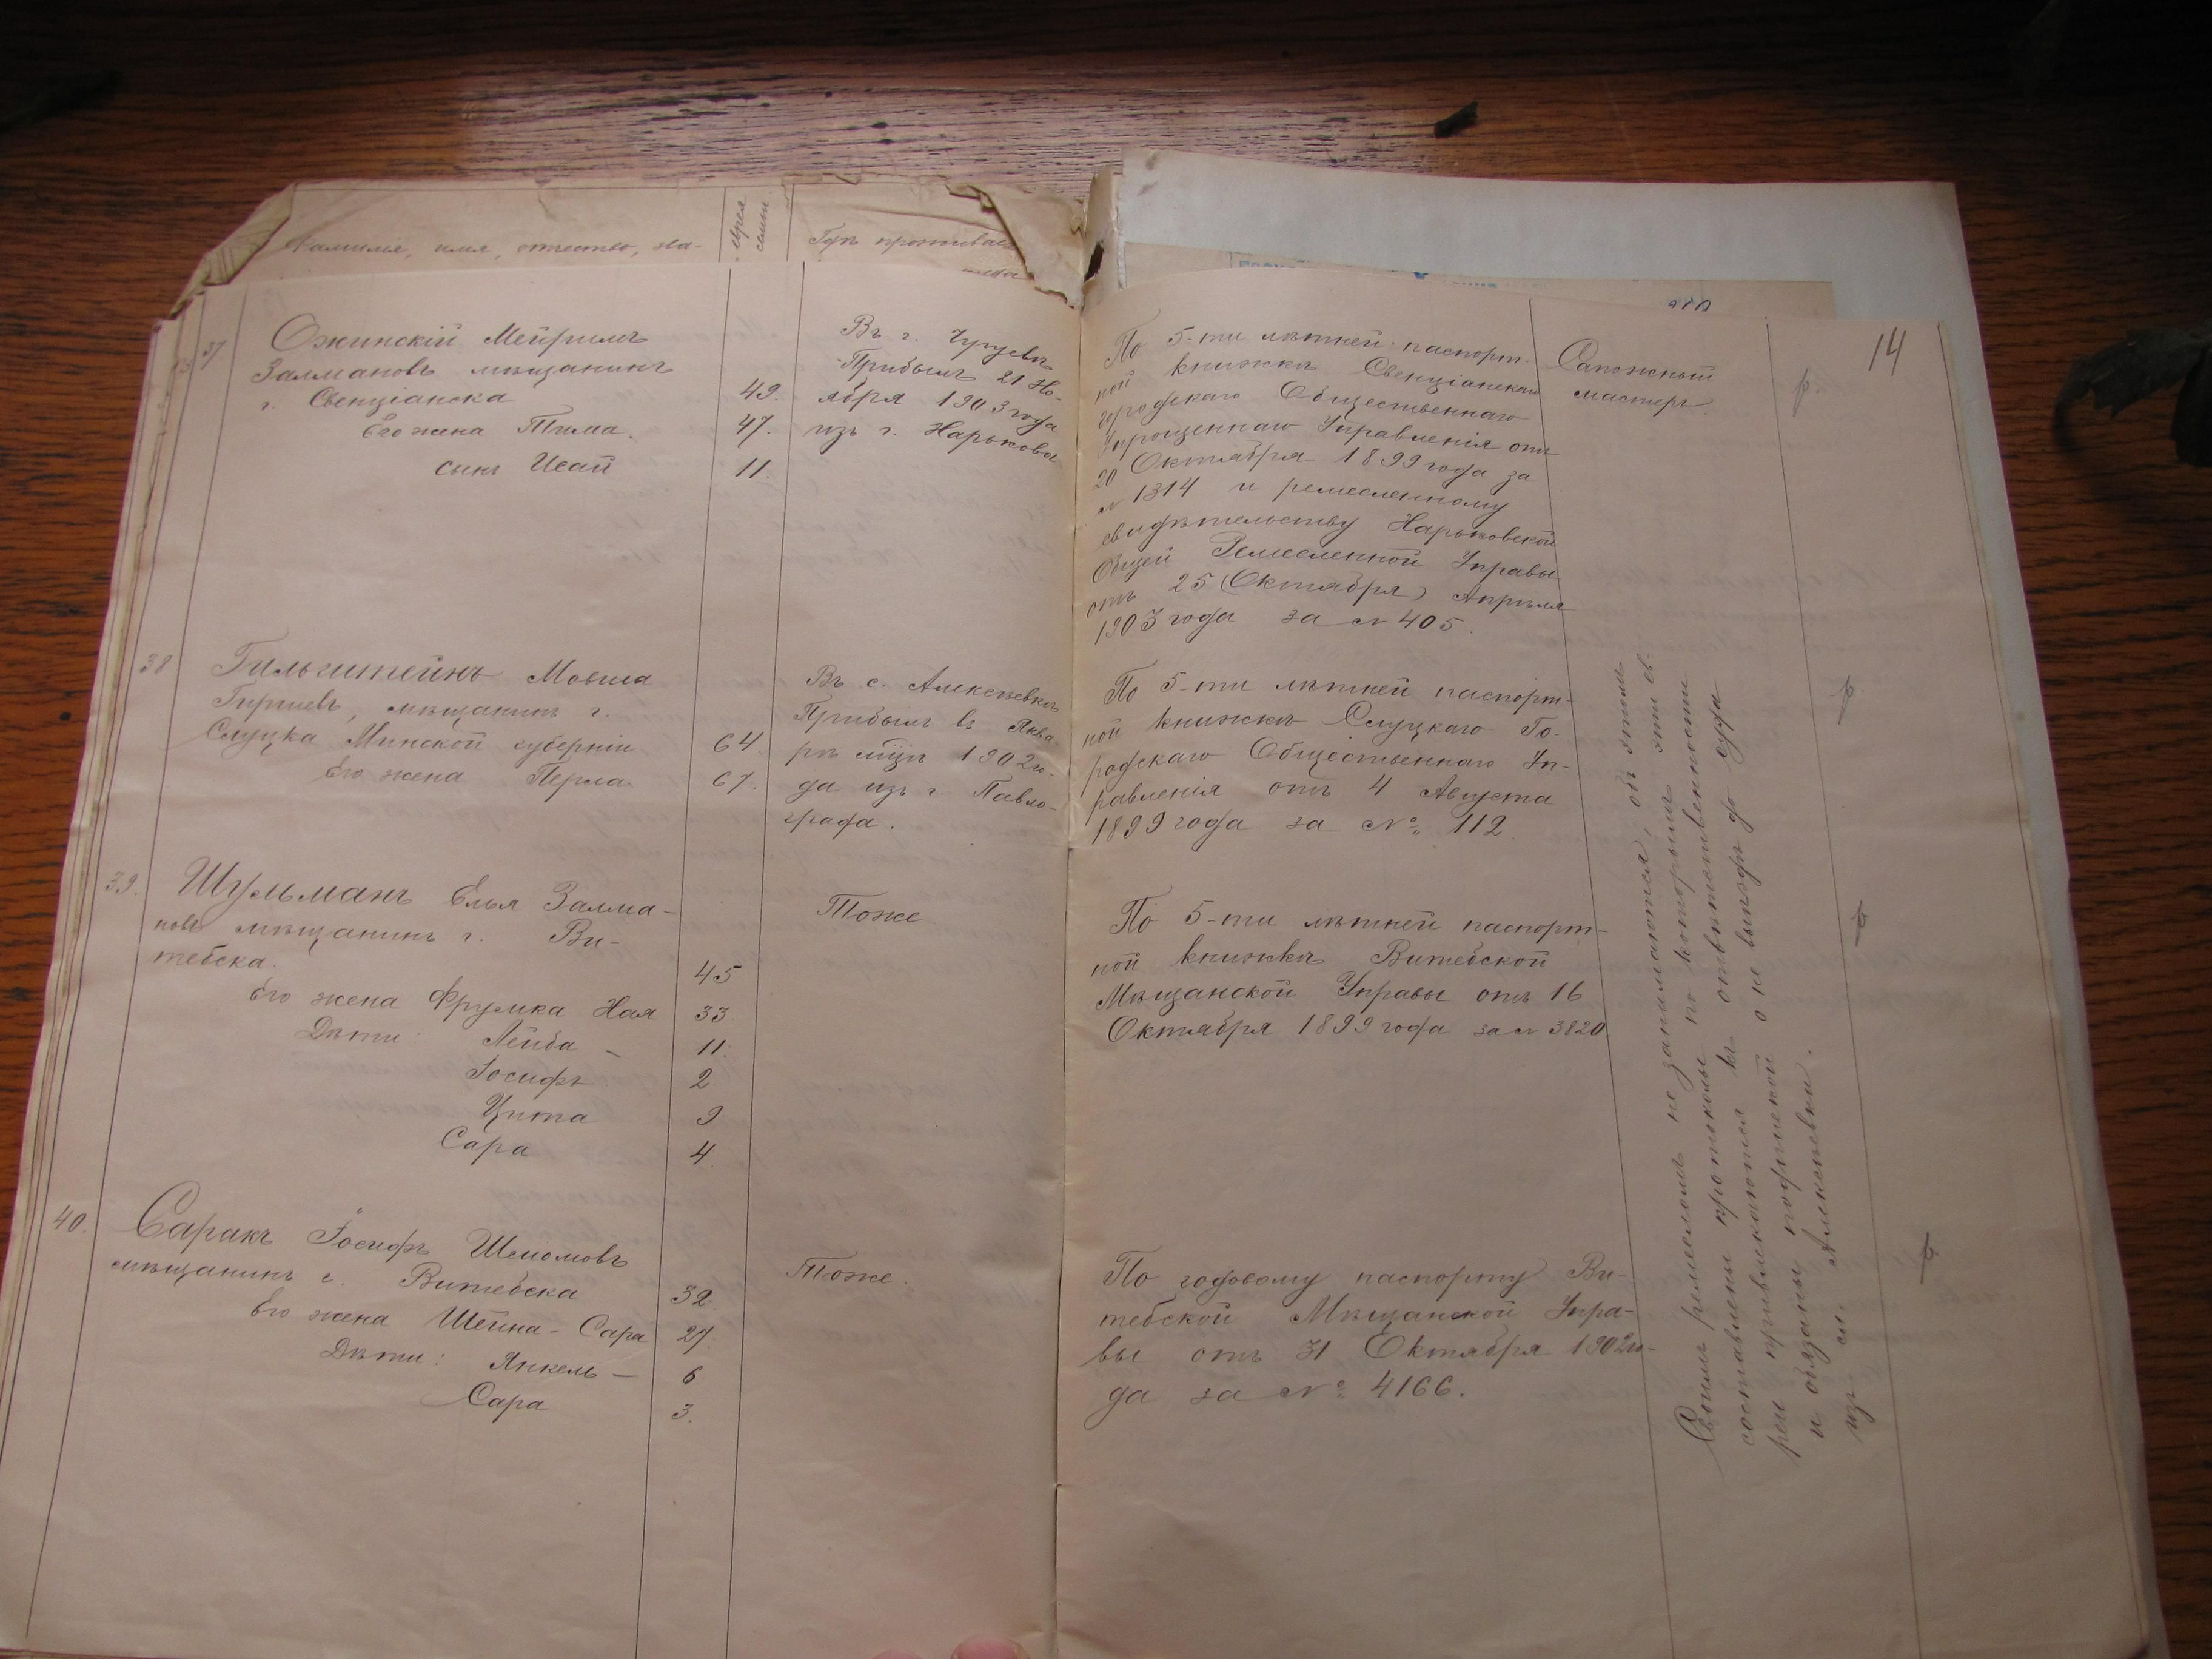 Фамилія, имя, отчество, зва-
Время
Гдѣ проживае
14
37
Ожинскій Мейримъ
Залмановъ мѣщанинъ
г. Свенціанска
49.
Его жена
47.
сынъ Исай
11.
Въ г. Чугуевѣ
Прибылъ 21 Но-
ября 1903 года
изъ г. Харькова
По 5-ти лѣтней паспорт-
ной книжкѣ Свенціанскаго
городскаго Общественнаго
Упрощеннаго Управленія отъ
20 Октября 1899 года за
№ 1314 и ремесленному
свидѣтельству Харьковской
Общей Ремесленной Управы
отъ 25 (Октября) Апрѣля
1903 года за № 405.
Сапожный
мастеръ.
р.
38
Гильчштейнъ Мовша
Гиршевъ, мѣщанинъ г.
Слуцка Минской губерніи
64.
Его жена Перла
67.
Въ с. Алексѣевкѣ
Прибылъ въ Янва-
рѣ мѣцѣ 1902 го-
да изъ г. Павло-
града.
По 5-ти лѣтней паспорт-
ной книжкѣ Слуцкаго Го-
родскаго Общественнаго Уп-
равленія отъ 4 Августа
1899 года за № 112.
39.
Шульманъ Елья Залма-
новъ мѣщанинъ г. Ви-
тебска.
45
Его жена Фрумка Хая
33
Дѣти: Лейба -
11.
Іосифъ
2
Цита
9
Сара
4.
Тоже
По 5-ти лѣтней паспорт-
ной книжкѣ Витебской
Мѣщанской Управы отъ 16
Октября 1899 года за № 3820
40.
Саракъ Іосифъ Шліомовъ
мѣщанинъ г. Витебска
32.
Его жена Шейна-Сара
27.
Дѣти: Янкель -
6
Сара
3.
Тоже.
По годовому паспорту Ви-
тебской Мѣщанской Упра-
вы отъ 31 Октября 1902 го-
да за № 4166.
Своимъ ремесломъ не занимаются, объ этомъ
составлены протоколы по которымъ эти ев-
реи привлекаются къ отвѣтственности
и обязаны подпиской о не выѣздѣ до суда
изъ сл. Алексѣевки.